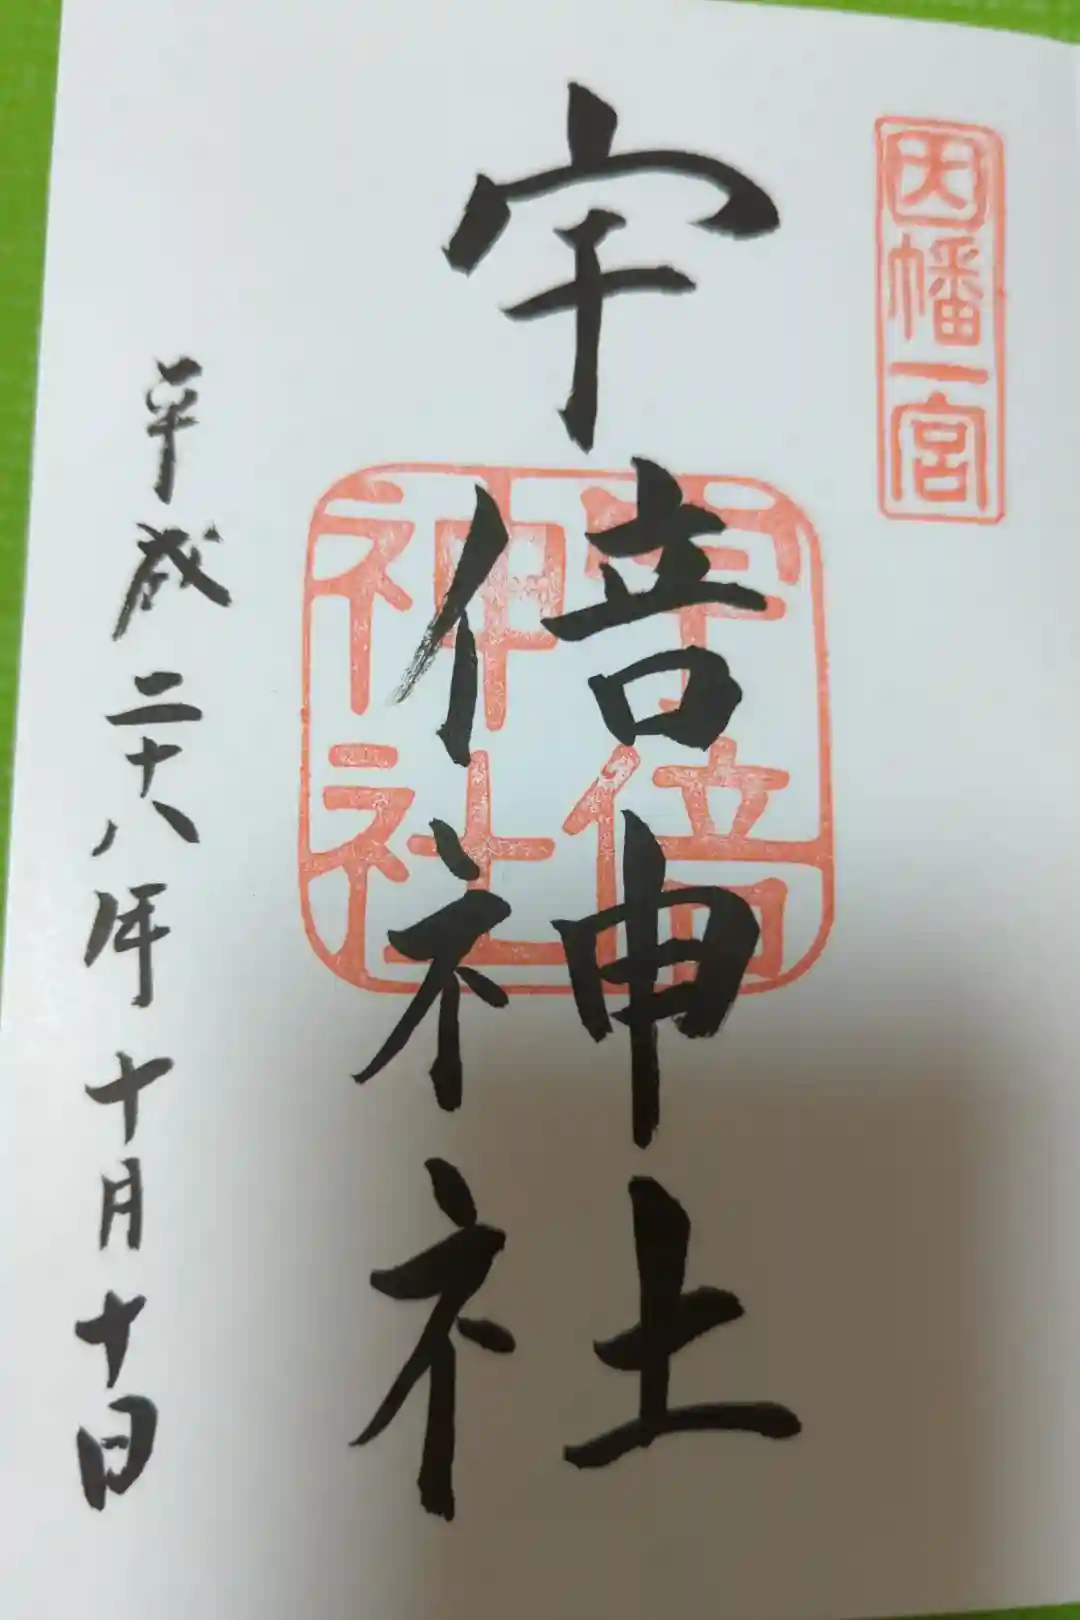 因幡一宮
宇倍神社
宇倍神社
平成二十八年十月十日